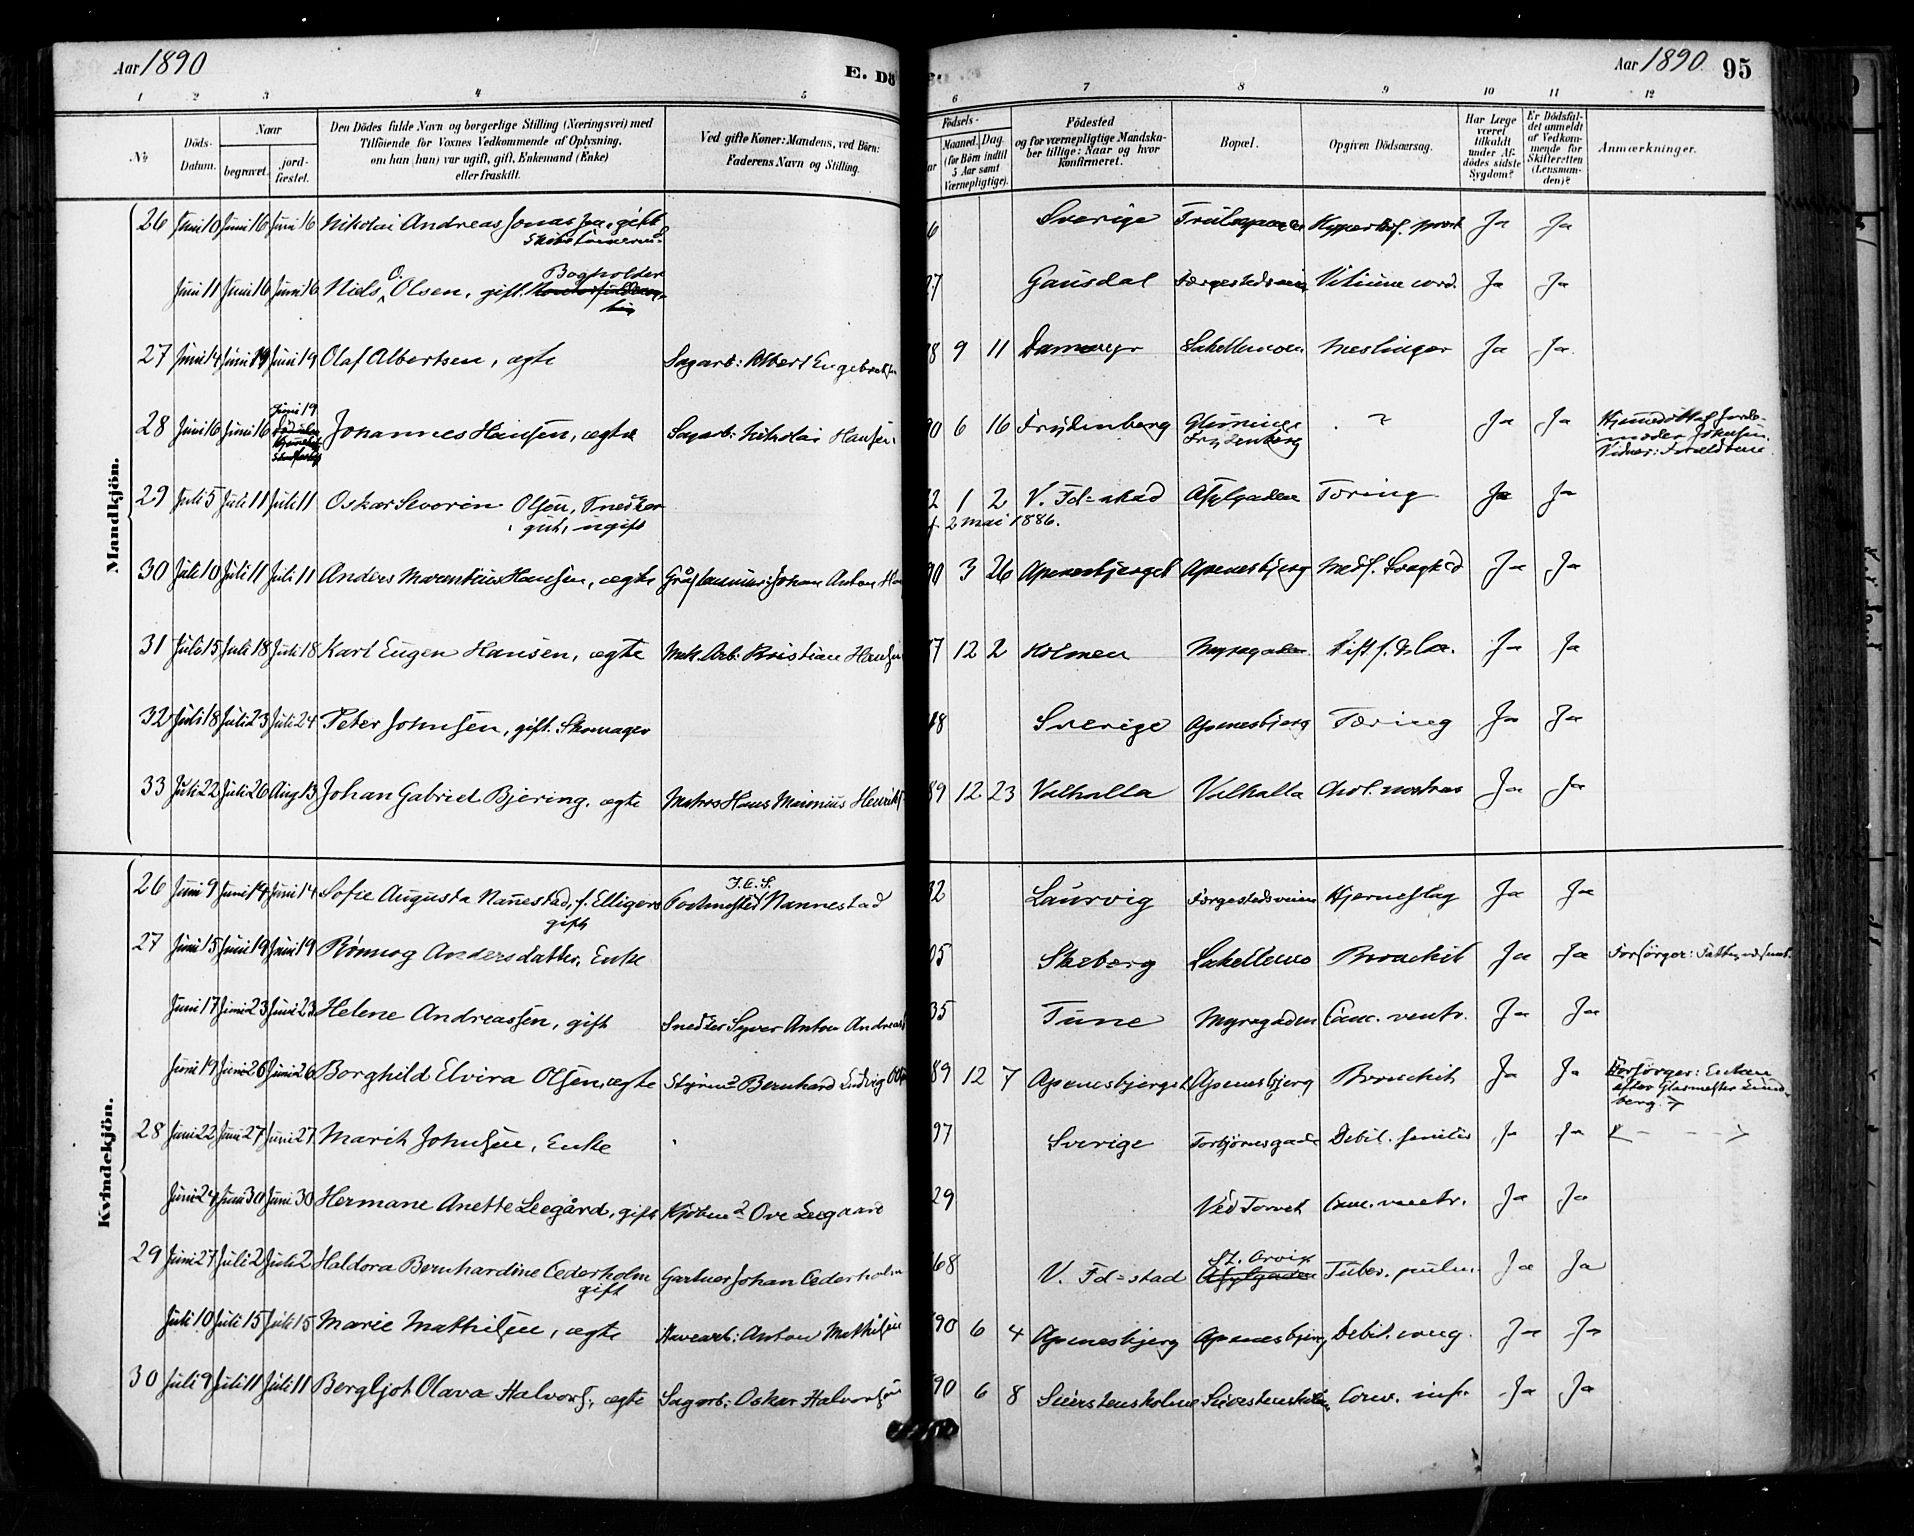 Aar 1890
E. Dö
Aar 1890 95
1 2 3 4 5 6 7 8 9 10 11 12
No.
Döds-Datum.
Naar
begravet.
jord-fæstet.
Den Dödes fulde Navn og borgerlige Stilling (Næringsvei) med
Tilföiende for Voxnes Vedkommende af Oplysning,
om han (hun) var ugift, gift, Enkemand (Enke)
eller fraskilt.
Ved gifte Koner: Mandens, ved Börn:
Faderens Navn og Stilling.
Födsels-
Maaned. Dag.
(for Børn indtil
5 Aar samt
Værnepligtige).
Födested
og for værnepligtige Mandska-
ber tillige: Naar og hvor
konfirmeret.
Bopæl.
Opgiven Dödsaarsag.
Har Læge
været
tilkaldt
under Af-
dödes sidste
Sygdom?
Er Dödsfal-
det anmeldt
af Vedkom-
mende for
Skifteretten
(Lensman-
den)?
Anmærkninger.
Mandkjön.
26 Juni 10 Juni 16 Juni 16 Nikolai Andreas Jonassen, gift 6 Sverige Ja Ja
Juni 11 Juni 16 Juni 16 Niels O. Olsen, gift. Bogholder 27 Gausdal Vitium cord. Ja Ja
27 Juni 14 Juni 19 Juni 19 Olaf Albertsen, ægte Sagarb: Albert Engebretsen 8 9 11 Dammyr Lahellemoen Meslinger Ja Ja
28 Juni 16 Juni 16 Juni 19 Johannes Hansen, ægte Sagarb: Nikolai Hansen 90 6 16 Frydenberg Glemminge Frydenberg ? Ja Ja Hjemmedöbt af Jorde-
moder
Vidner: Forældrene
29 Juli 5 Juli 11 Juli 11 Oskar Severin Olsen, Snedker
gut, ugift 2 1 2 V. Fd=stad Asylgaden Tæring Ja Ja
2 mai 1886.
30 Juli 10 Juli 11 Juli 11 Anders Marentius Hansen, ægte Johan Anton 90 3 26 Apenesbjerget Apenesbjerg Medf. Svaghed Ja Ja
31 Juli 15 Juli 18 Juli 18 Karl Eugen Hansen, ægte Mek. Arb: Kristian Hansen 7 12 2 Holmen Myragaden Ja Ja
32 Juli 18 Juli 23 Juli 24 Peter Johnsen, gift. Skomager 48 Sverige Apenesbjerg Tæring Ja Ja
33 Juli 22 Juli 26 Aug 13 Johan Gabriel Bjering, ægte Matros Hans Henriks 89 12 23 Valhalla Valhalla Chol. nostras Ja Ja
Kvindekjön.
26 Juni 9 Juni 14 Juni 14 Sofie Augusta Nannestad, f. Elligers
gift Postmester J.E.S. Nannestad 32 Laurvig Færgestedsveien Hjerneslag Ja Ja
27 Juni 15 Juni 19 Juni 19 Rönnog Andersdatter, Enke 05 Skeberg Lahellemo Bronchit Ja Ja Forsörger: Fattigvæsenet
Juni 17 Juni 23 Juni 23 Helene Andreassen, gift Snedker Syver Anton Andreas 35 Tune Myragaden Canc. ventr. Ja Ja
Juni 19 Juni 26 Juni 26 Borghild Elvira Olsen, ægte Styrmd Bernhard Ludvig Ols 89 12 7 Apenesbjerget Apenesbjerg Bronchit Ja Ja Forsörger: Enken
efter Glasmester Lund-
berg.
28 Juni 22 Juni 27 Juni 27 Marit Johnsen, Enke 97 Sverige Torbjörnsgade Debil. senilis Ja Ja
Juni 24 Juni 30 Juni 30 Hermane Anette Leegård, gift Kjöbmd Ove Leegaard 29 Ved Torvet Canc. ventr. Ja Ja
29 Juni 27 Juli 2 Juli 2 Haldora Bernhardine Cederholm
gift Gartner Johan Cederholm 68 V. Fd=stad Asylgaden Tuber. pulm. Ja Ja
Juli 10 Juli 15 Juli 15 Marie Mathisen, ægte Havearb: Anton Mathisen 90 6 4 Apenesbjerg Apenesbjerg Debil. cong. Ja Ja
30 Juli 9 Juli 11 Juli 11 Bergljot Olava Halvors, ægte Sagarb: Oskar Halvorsen 90 6 8 Conv. inf. Ja Ja